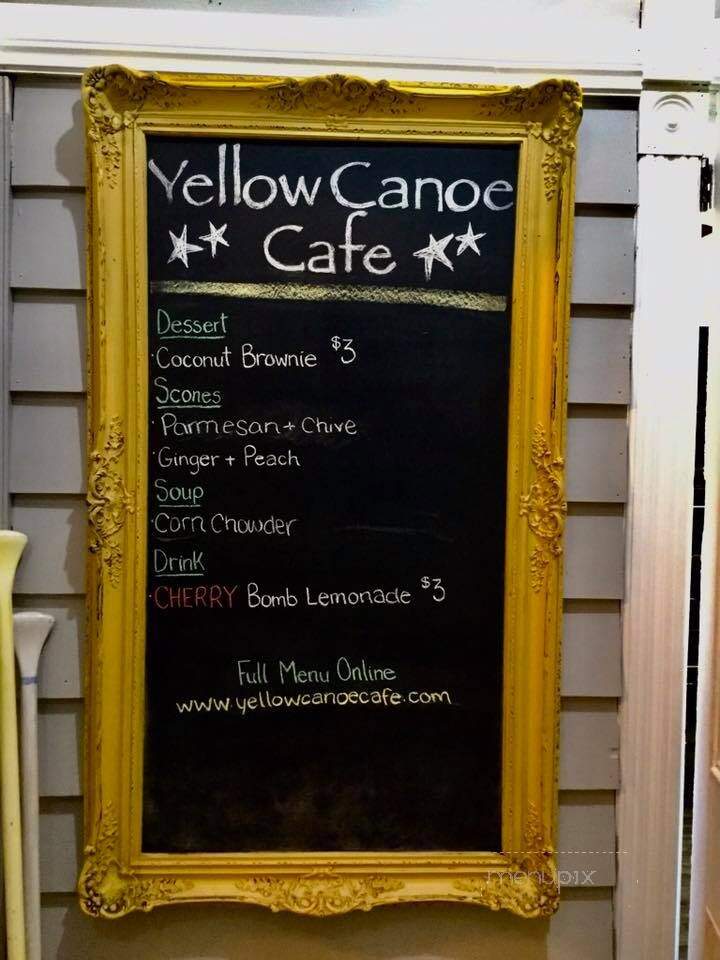 Yellow Canoe
Cafe
Dessert
·Coconut Brownie $3
Scones
·Parmesan + Chive
·Ginger + Peach
Soup
·Corn Chowder
Drink
·CHERRY Bomb Lemonade $3
Full Menu Online
www.yellowcanoecafe.com
menupix